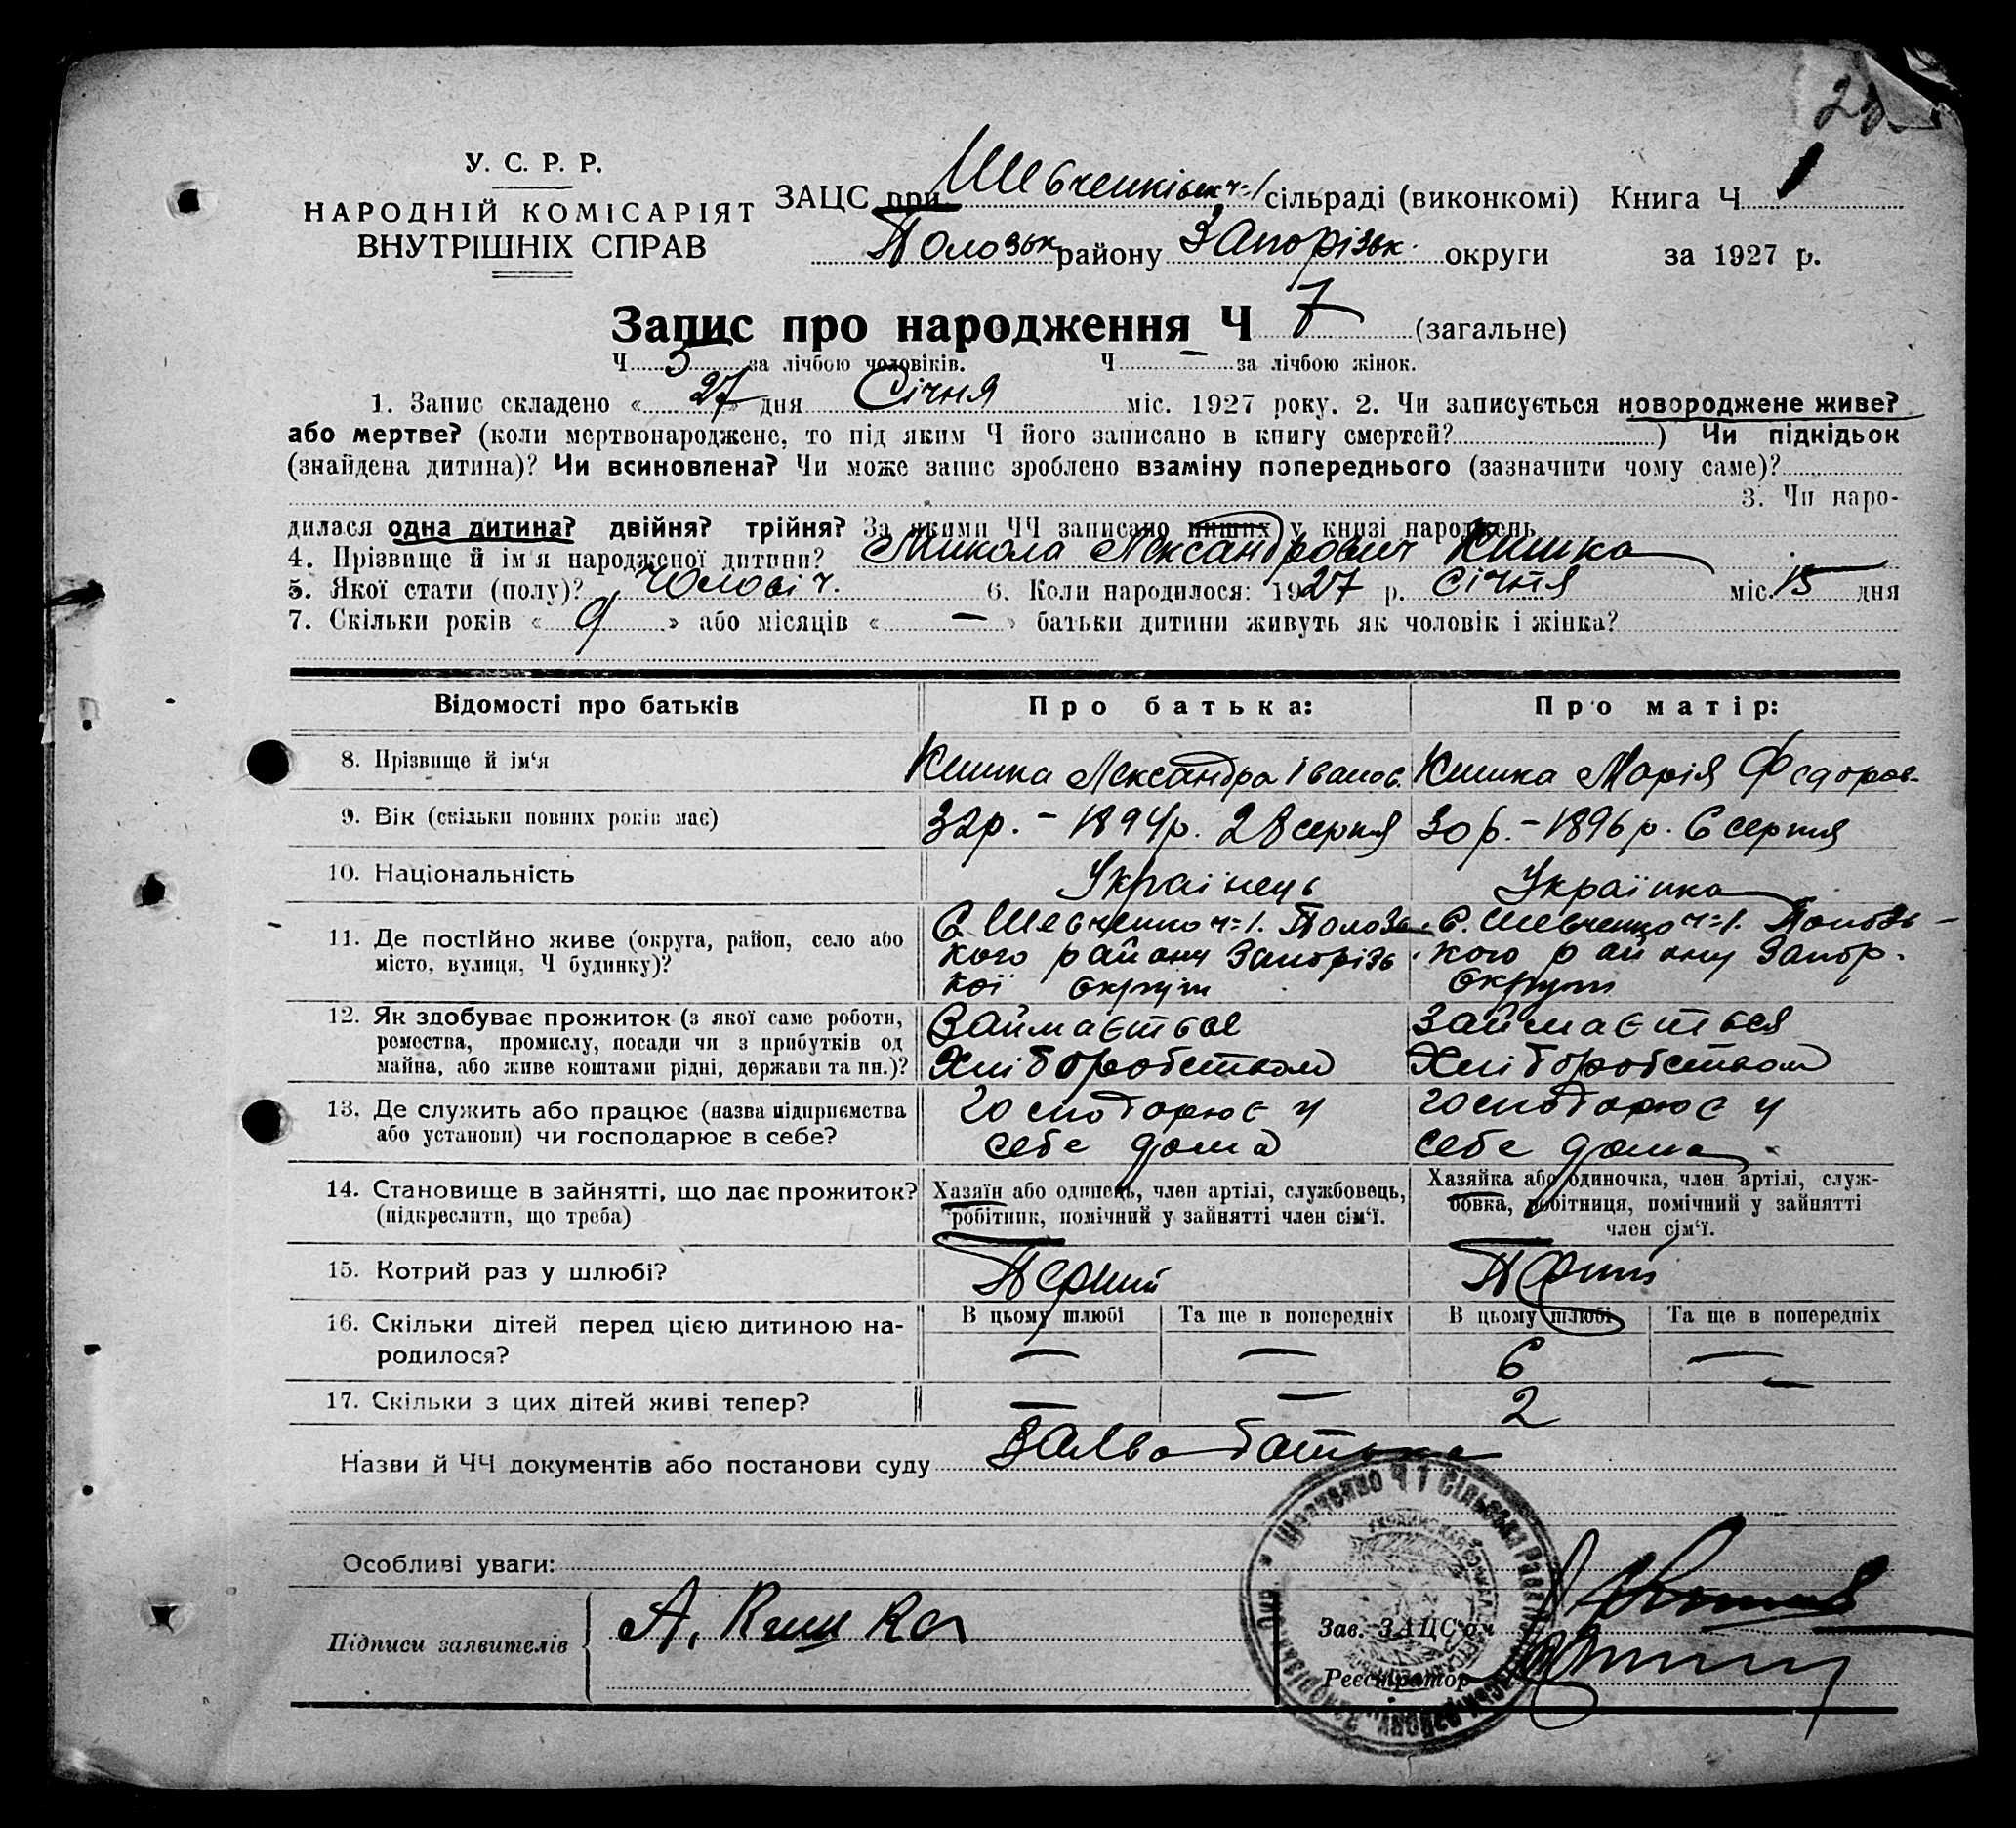 У. С. Р. Р.
НАРОДНІЙ КОМІСАРІЯТ
ВНУТРІШНІХ СПРАВ
ЗАЦС при Шевченківськ ч=1 сільраді (виконкомі) Книга Ч 1
Полозьк району Запорізьк. округи за 1927 р.
Запис про народження Ч 7 (загальне)
Ч 5 за лічбою чоловіків. Ч — за лічбою жінок.
1. Запис складено « 27 » дня Січня міс. 1927 року. 2. Чи записується новороджене живе?
або мертве? (коли мертвонароджене, то під яким Ч його записано в книгу смертей? ) Чи підкідьок
(знайдена дитина)? Чи всиновлена? Чи може запис зроблено взаміну попереднього (зазначити чому саме)?
3. Чи наро-
дилася одна дитина? двійня? трійня? За якими ЧЧ записано инших у книзі народжень
4. Прізвище й ім'я народженої дитини? Микола Лександрович Кишка
5. Якої стати (полу)? чоловіч. 6. Коли народилося: 1927 р. січня міс. 15 дня
7. Скільки років « 9 » або місяців « — » батьки дитини живуть як чоловік і жінка?
Відомості про батьків Про батька: Про матір:
8. Прізвище й ім'я Кишка Лександра Іванов. Кишка Марія Федоров-
9. Вік (скільки повних років має) 32р. – 1894р. 28 серпня 30 р. – 1896 р. 6 серпня
10. Національність Українець Українка
11. Де постійно живе (округа, район, село або місто, вулиця, Ч будинку)?
С. Шевченко ч=1. Полозь-
кого району Запорізь
кої округи
С. Шевченко ч=1. Полозь-
кого району Запор.
округи
12. Як здобуває прожиток (з якої саме роботи,
ремества, промислу, посади чи з прибутків од
майна, або живе коштами рідні, держави та ин.)?
Займається
Хліборобством
Займається
Хліборобством
13. Де служить або працює (назва підприємства
або установи) чи господарює в себе?
господарює у
себе дома
господарює у
себе дома
14. Становище в зайнятті, що дає прожиток?
(підкреслити, що треба)
Хазяїн або одинець, член артілі, службовець,
робітник, помічний у зайнятті член сім'ї.
Хазяйка або одиночка, член артілі, служ-
бовка, робітниця, помічний у зайнятті
член сім'ї.
15. Котрий раз у шлюбі? Перший Перший
16. Скільки дітей перед цією дитиною на-
родилося?
В цьому шлюбі Та ще в попередніх В цьому шлюбі Та ще в попередніх
— — 6 —
17. Скільки з цих дітей живі тепер? — — 2 —
Назви й ЧЧ документів або постанови суду Заява батька
Особливі уваги:
Підписи заявителів А. Кишка
Зав. ЗАЦС'ом
Реєстратор
Шевченко Ч 1 Сільська Рада